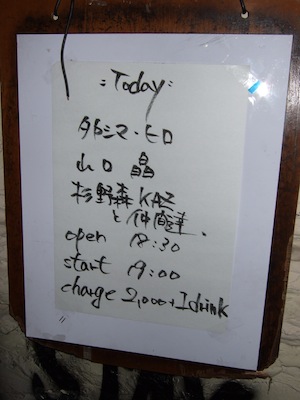 = Today =
外シマ・ヒロ
山口 晶
杉野森KAZ
と仲間達、
open 18:30
start 19:00
charge 2,000+1drink